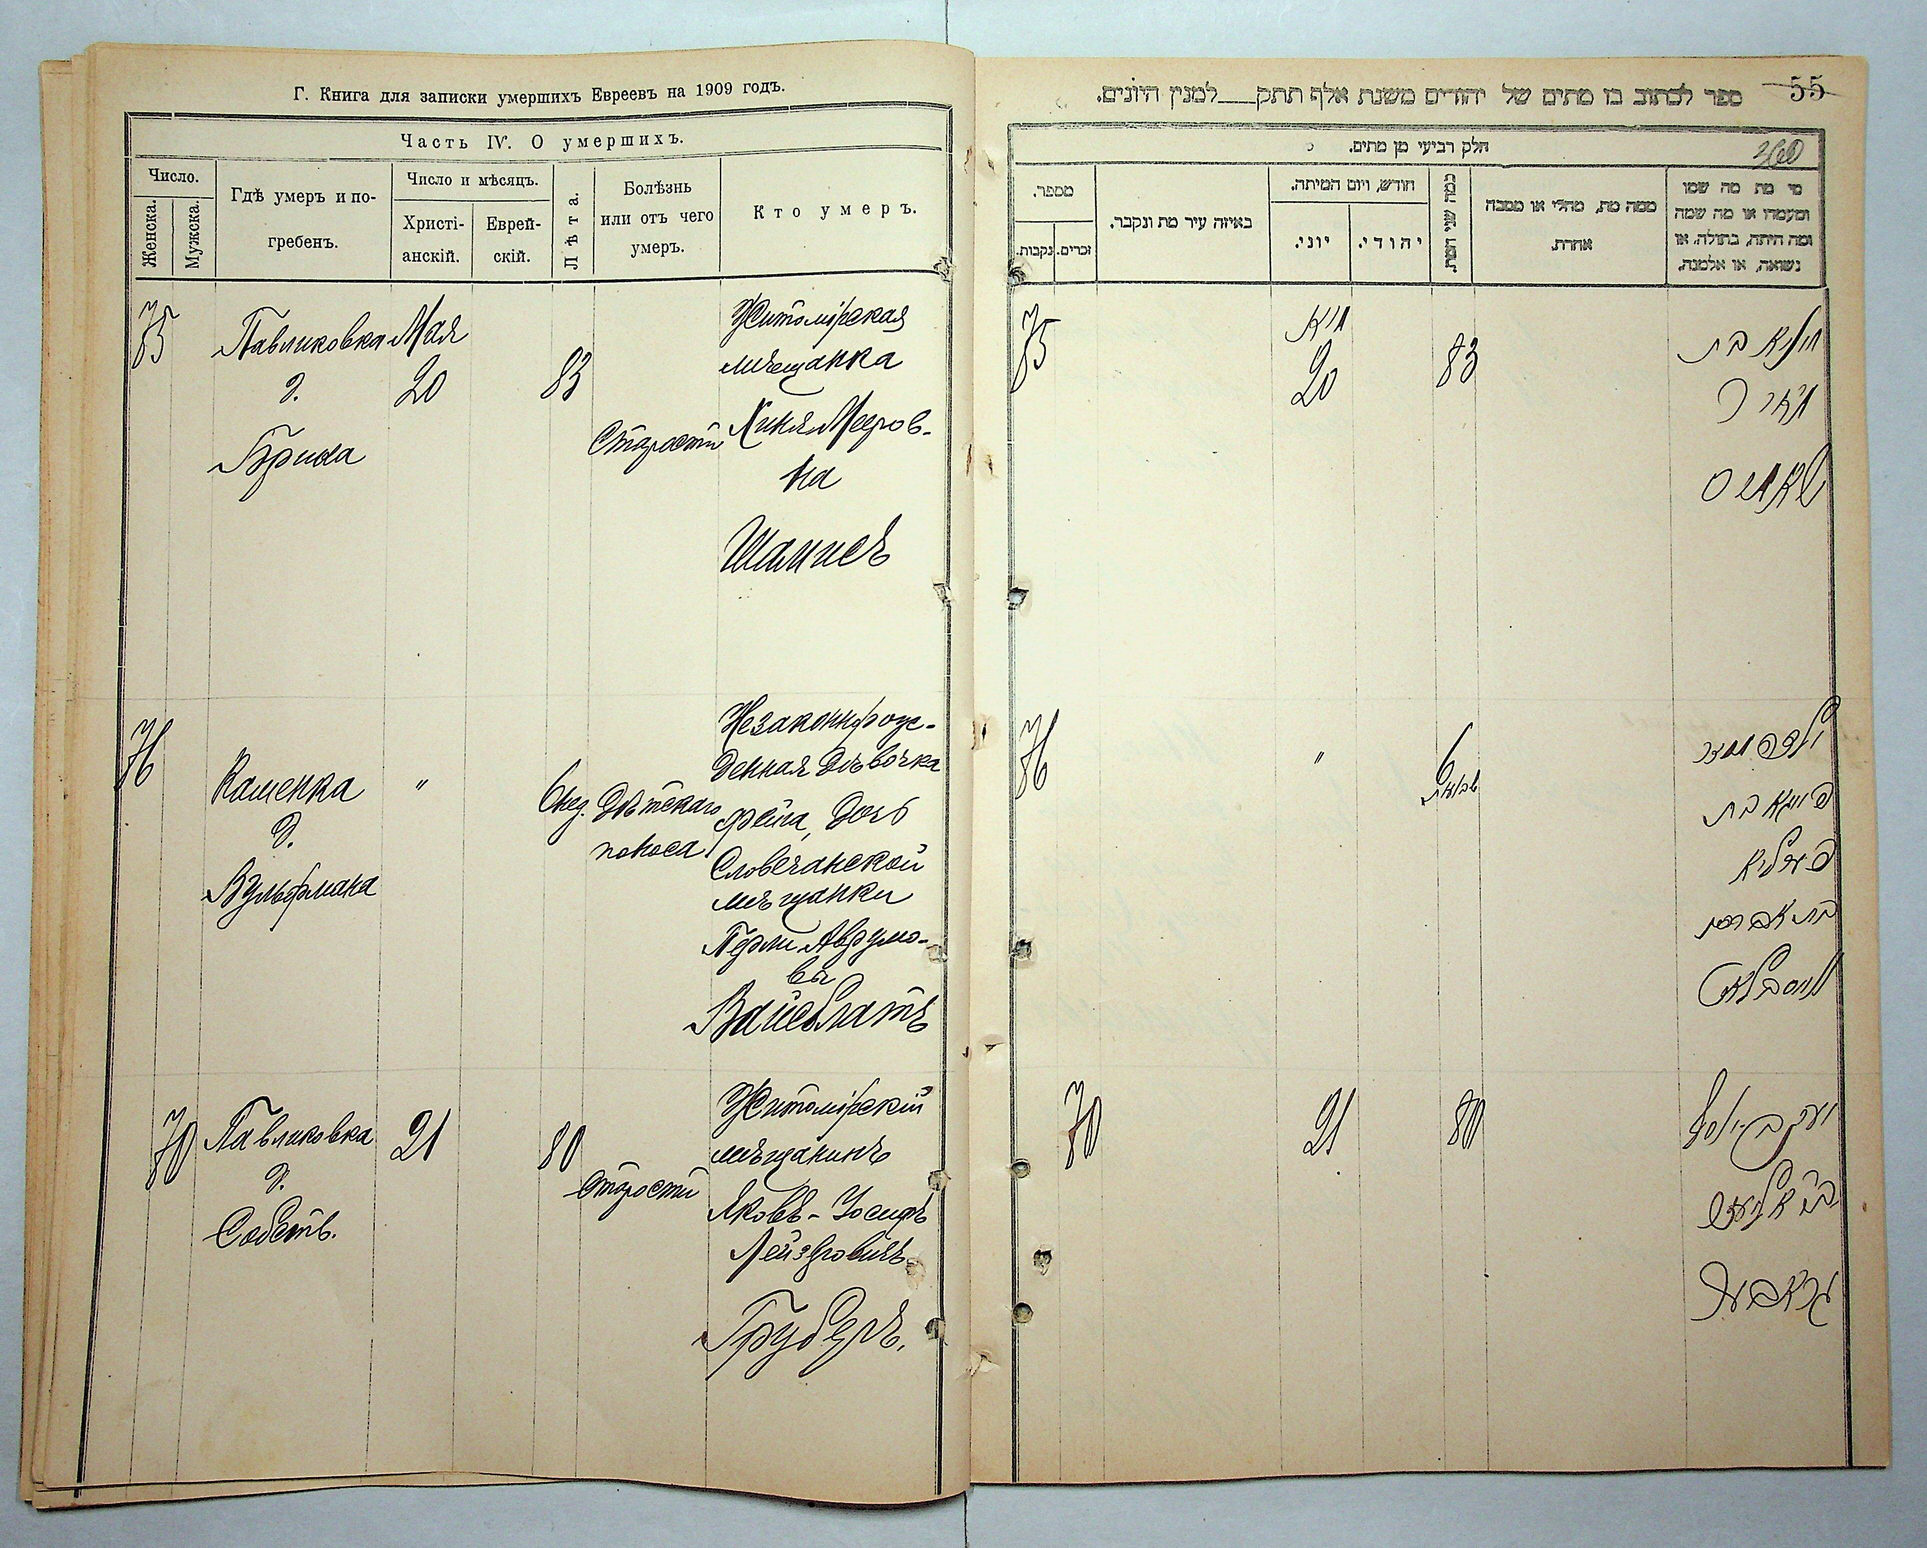 Г. Книга для записки умершихъ Евреевъ на 1909 годъ.
Часть IV. О умершихъ.
Число.
Женска.
Мужска.
Гдѣ умеръ и по-
гребенъ.
Число и мѣсяцъ.
Христі-
анскій.
Еврей-
скій.
Лѣта.
Болѣзнь
или отъ чего
умеръ.
Кто умеръ.
75
Павликовка
д.
Мая
20
83
Старости
Житомірская
мѣщанка
Хиня Мееров-
на
Шамисъ
76
Каменка
д.
Вульфмана
"
6 нед.
Дѣтскаго
поноса
Незаконнорож-
денная дѣвочка
Фейга, дочь
Словечанской
мѣщанки
Перли Аврумо-
вы
Вайсблатъ
70
Павликовка
д.
Собств.
21
80
Старости
Житомірскій
мѣщанинъ
Яковъ-Іосифъ
Лейзеровичъ
Груберъ.
55
ספר לכתוב בו מתים של יהודים משנת אלף תתק___למנין היונים.
חלק רביעי מן מתים.
מספר.
נקבות.
זכרים.
באיזה עיר מת ונקבר.
חודש, ויום המיתה.
יוני.
יהודי.
כמה שני המת.
ממה מת, מחלי או מסבה
אחרת.
מי מת מה שמו
ומעמדו או מה שמה
ומה היתה, בתולה, או
נשואה, או אלמנה.
75
מייא
20
83
מאיר
שאמיס
76
"
6
פייגא בת
פערליא
בת אברהם
ווייסבלאט
70
21
80
יעקב יוסף
גראבער